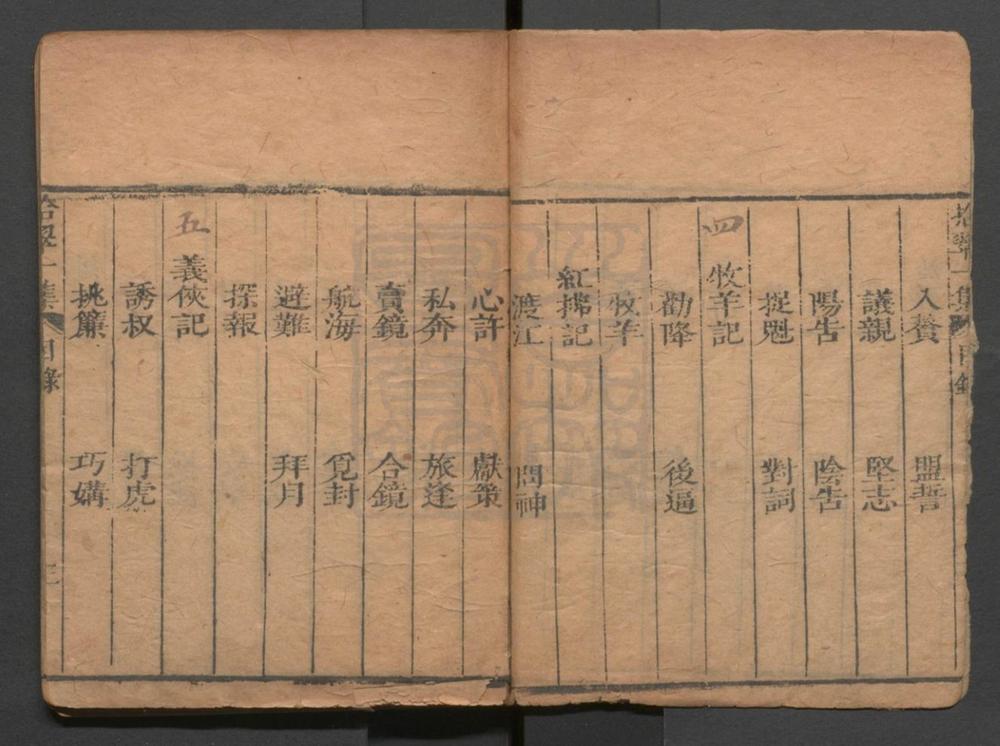 入贅 盟誓
議親 堅志
陽告 陰告
捉䰟 對詞
四 牧羊記
勸降 後逼
牧羊
紅拂記
渡江 問神
心許 獻策
私奔 旅逢
賣鏡 合鏡
航海 覓封
避難 拜月
探報
五 義俠記
誘叔 打虎
挑簾 巧媾
拾翠一集 目錄 三